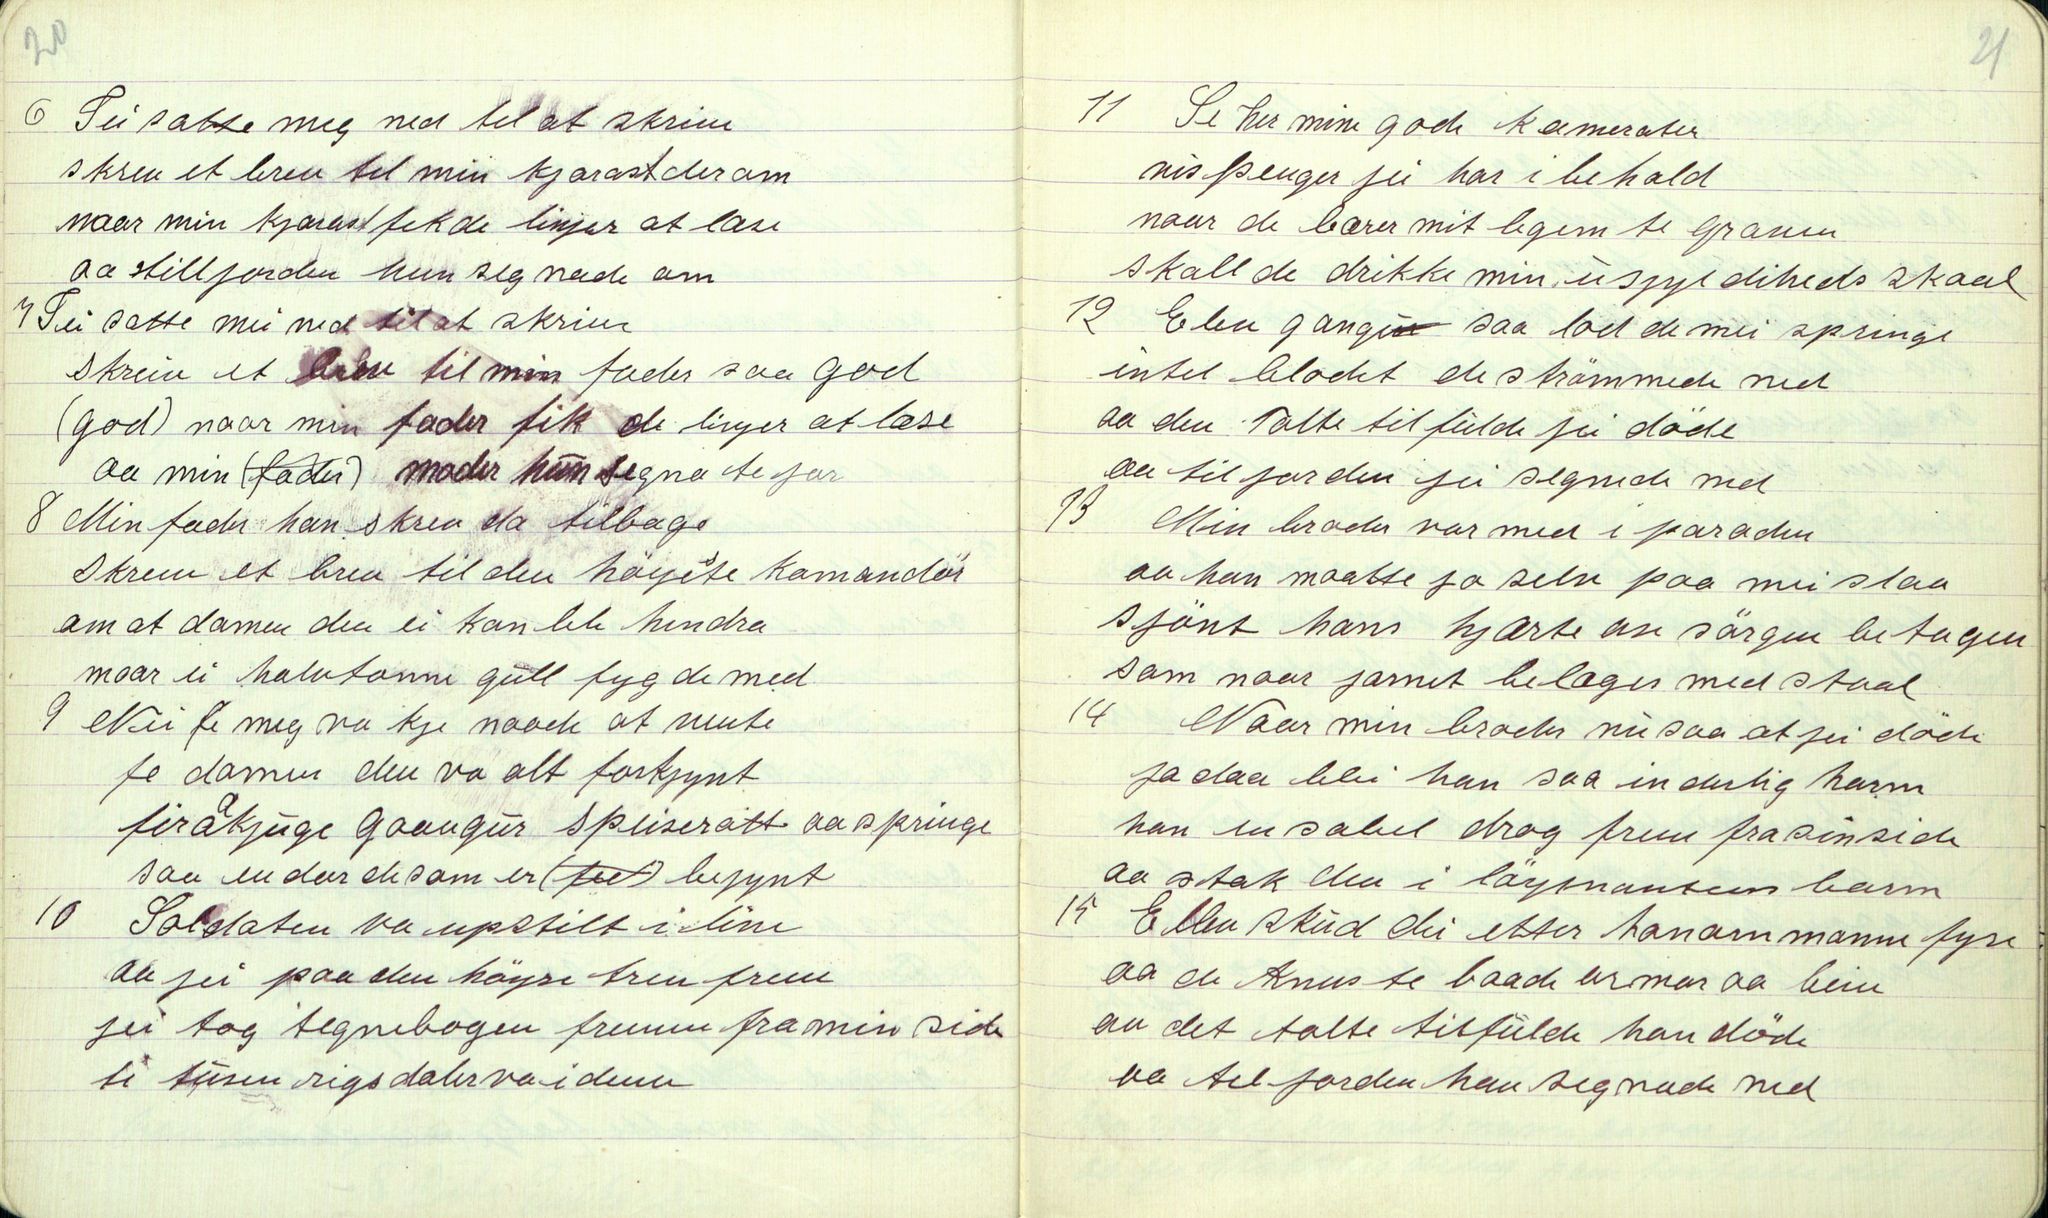 20
6 Jei satte meg ned til at skrive
skrev et brev til min kjærast derom
naar min kjærast fek de linjer at læse
aa till jorden hun segnede om
7 Jei satte mei ned til at skrive
skreiv et brev til min fader saa god
(god) naar min fader fik de linjer at læse
aa min (fader) moder hun segna te jor
8 Min fader han skrev da tilbage
skrev et brev til den høyeste komandör
om at domen den ei kan bli hendra
naar ei halv tonne gull fygde med
9 Nei fe meg va kje naade at vente
fe domen den va alt forkjynt
fira kjuge gaangur speiseratt aa springe
saa endar de som er (fee) bejynt
10 Soldaten va upstilt i line
aa jei paa den høyre tren frem
jei tog tegnebogen fremm fra min side
ti tusen rigsdaler va i dem
21
11 Se her mine gode kamerater
vis penger jei har i behold
naar de bærer mit legem te graven
skall de drikke min uskyldiheds skaal
12 Elve gangur saa lod de mei springe
intel blodet de strömmede ned
aa den Tolte til fulde jei döde
aa til jorden jei segnede ned
13 Min broder var med i paraden
aa han maatte jo selv paa mei slaa
sjönt hans hjærte av sörgen betagen
som naar jarnet belæges med staal
14 Naar min broder nu saa at jei döde
ja daa blei han saa inderlig harm
han en sabel drog frem fra sin side
aa stak den i löysnantens barm
15 Elleve skud dei etter honom monne fyre
aa de knuste baade armar aa bein
aa det tolte tilfulde han döde
aa til jorden han segnade ned